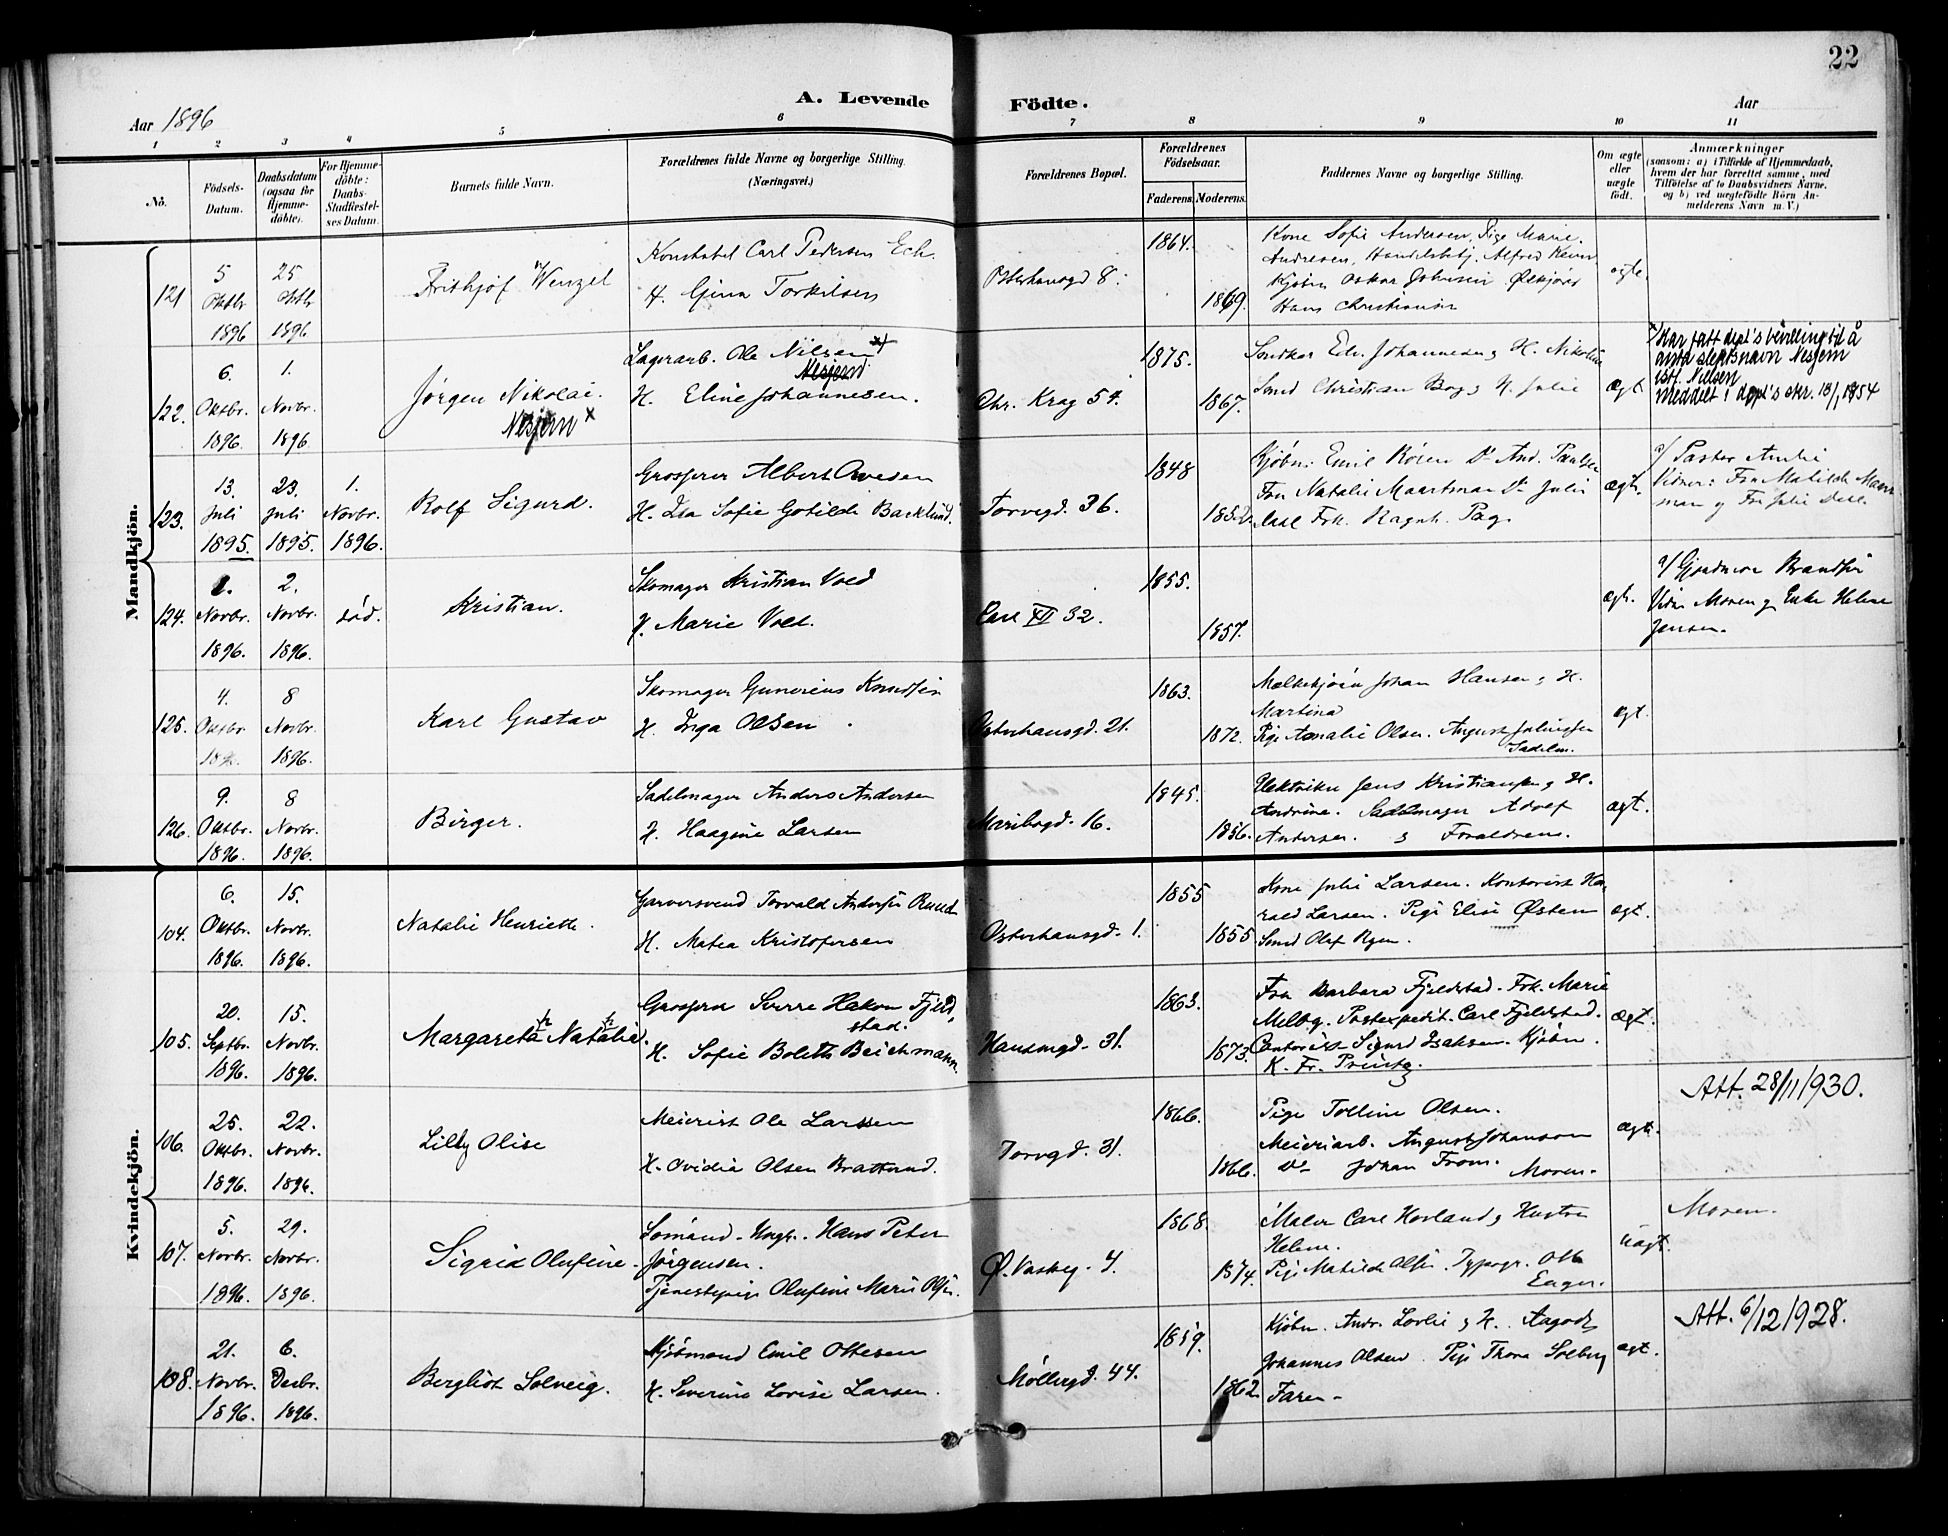 22
A. Levende Födte.
Aar 1896
Aar
1 2 3 4 5 6 7 8 9 10 11
No.
Födsels-Datum.
Daabsdatum (ogsaa for Hjemme-döbte).
For Hjemme-döbte: Daabs-Stadfæstel-ses Datum.
Barnets fulde Navn.
Forældrenes fulde Navne og borgerlige Stilling. (Næringsvei.)
Forældrenes Bopæl.
Forældrenes Födselsaar.
Faderens. Moderens.
Faddernes Navne og borgerlige Stilling.
Om ægte eller uægte födt.
Anmærkninger
(saasom: a) i Tilfælde af Hjemmedaab, hvem der har forrettet samme, med Tilföielse af to Daabsvidners Navne, og b) ved uægtefödte Börn An-melderens Navn m. V.)
Mandkjön.
121
5 Oktbr 1896
25 Oktbr 1896
Frithjof Wenzel
Konstabel Carl Pedersen Ech
H. Gina Torkilsen
Osterhausgd 8.
1864.
1869.
Kone Sofie Andersen, Pige Marie
Andresen, Handelsbtj. Alfred
Kjøbm Oskar Johnsen
Hans Christiansen
ægte.
122.
6. Oktbr. 1896
1. Novbr. 1896
Jørgen Nikolai.
Nesjem x
Lagerarb. Ole Nilsen x)
Nesjem
H. Eline Johannesen.
Chr. Krag 54.
1875.
1867.
Edv. Johannesen & H. Nikoline
Smed Christian Bog & H. Julie
ægt.
x) Har fått dept's bevilling til å
anta slektsnavn Nesjem
istf. Nilsen
Meddelt i dept's skr. 13/1 1954
123.
13. Juli 1895.
23. Juli 1895.
1. Novbr. 1896.
Rolf Sigurd.
Grosserer Albert Ovesen
H. Ida Sofie Gotilde Backlund.
Torvgd. 36.
1848
Kjøbm. Emil Rosen Do And. Paulsen
Fru Natalie Maartman Do Julie
Frk. Ragnh.
ægte.
a/ Pastor
Vidner: Fru Matilde Maart
man & Fru Julie
124.
1. Novbr. 1896.
2. Novbr. 1896.
död.
Kristian.
Skomager Kristian Vold
H. Marie Vold.
Carl XII 32.
1855.
1857.
ægt.
a/ Gjordmor
Vidn Moren & Enke Helene
Jensen.
125.
4. Oktbr 1896
8 Novbr. 1896.
Karl Gustav
Skomager Gunerius Knudsen
H. Inga Olsen.
Osterhausgd. 21.
1863.
1872.
Mælkekjører Johan Hansen & H.
Martina
Pige Amalie Olsen. August Juliussen
Sadelm.
ægt
126.
9. Oktbr. 1896.
8 Novbr. 1896.
Birger.
Sadelmager Anders Andersen
H. Haagine Larsen
Maribogd. 16.
1845.
1856.
Elektriker Jens Kristiansen & H.
Andrine. Sadelmager Adolf
Andersen. & Forældrene.
ægt.
Kvindekjön.
104.
6. Oktbr. 1896.
15. Novbr. 1896.
Natalie Henriette.
Garversvend Torvald Andersen Ruud
H. Matea Kristofersen
Osterhausgd. 1.
1855
1855
Kone Julie Larsen. Kontorist Ha-
rald Larsen. Pige Elise Østen
Smed Olof
ægt.
105.
20. Septbr. 1896.
15. Novbr. 1896.
Margareta Natalia.
Grosserer Sverre Hakon Fjeld-
stad.
H. Sofie Boletta Beichmann
Hausmgd. 31.
1863.
1873.
Fru Barbara Fjeldstad. Frk. Marie
Melbg. Postexpedit. Carl Fjeldstad.
Contorist Sigurd Isaksen. Kjøbm.
K. Fr. Printz.
ægt.
106.
25. Oktbr. 1896.
22. Novbr. 1896.
Lilly Olise
Meierist Ole Larsen
H. Ovidia Olsen Bratterud.
Torvgd. 31.
1866.
1866.
Pige Tolline Olsen.
Meieriarb. August Johanson
Do Johan From. Moren.
ægt.
Att. 28/11 1930.
107.
5. Novbr. 1896.
29. Novbr. 1896.
Sigrid Olufine.
Sömand. Ungk. Hans Peter
Jörgensen.
Tjenestepige Olufine Marie Olsen.
Ø. Vaskeg. 4.
1868.
1874.
Maler Carl Hovland & Hustru
Helene.
Pige Matilde Olsen. Typogr. Otto
Enger.
uægt.
Moren.
108.
21. Novbr. 1896.
6. Decbr. 1896.
Bergliot Solveig.
Kjøbmand Emil Ottesen
H. Severine Lovise Larsen.
Møllergd. 44.
1859.
1862
Kjøbm. Andr. Lovlie & H. Aagodt
Johannes Olsen. Pige Thora Solberg
Faren.
ægt.
Att. 6/12 1928.